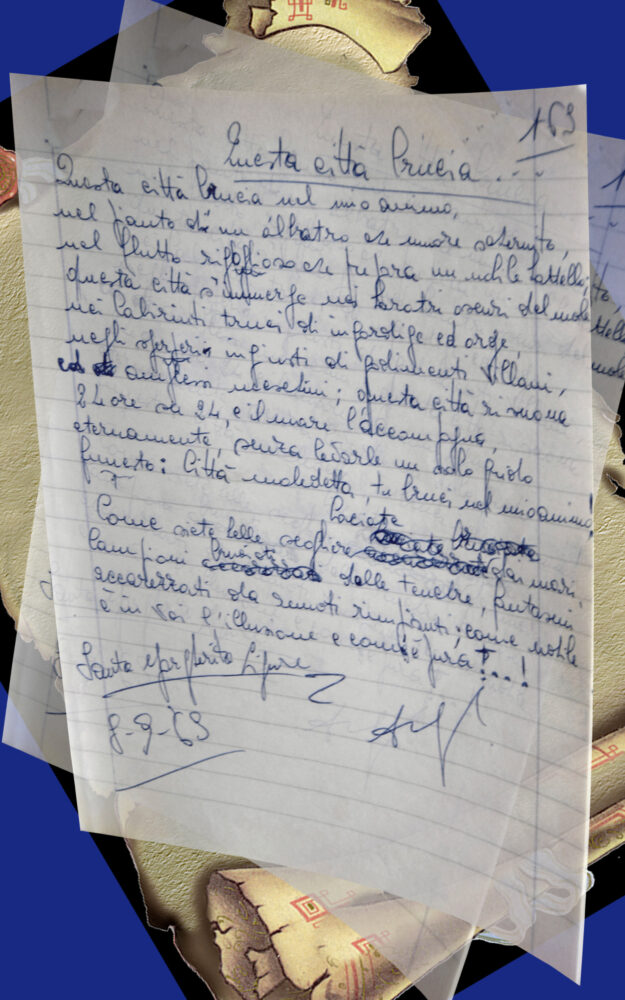 163
Questa città brucia...
Questa città brucia nel mio animo,
nel pianto di un albatro che muore
nel flutto che un battello,
questa città s'immerge nei baratri oscuri del male
nei labirinti truci di ingordigie ed orge,
negli ingiusti di villani,
ed amplessi meschini; questa città risuona
24 ore su 24, e il mare l'accompagna,
eternamente, senza un solo grido
funesto: Città maledetta, tu bruci nel mio animo!
Come siete belle scogliere baciate dai mari,
lampioni bruciati dalle tenebre, fantasmi
accarezzati da remoti rimpianti; come
è in voi l'illusione e com'è pura!...!
Santa Margherita Ligure
8-9-63